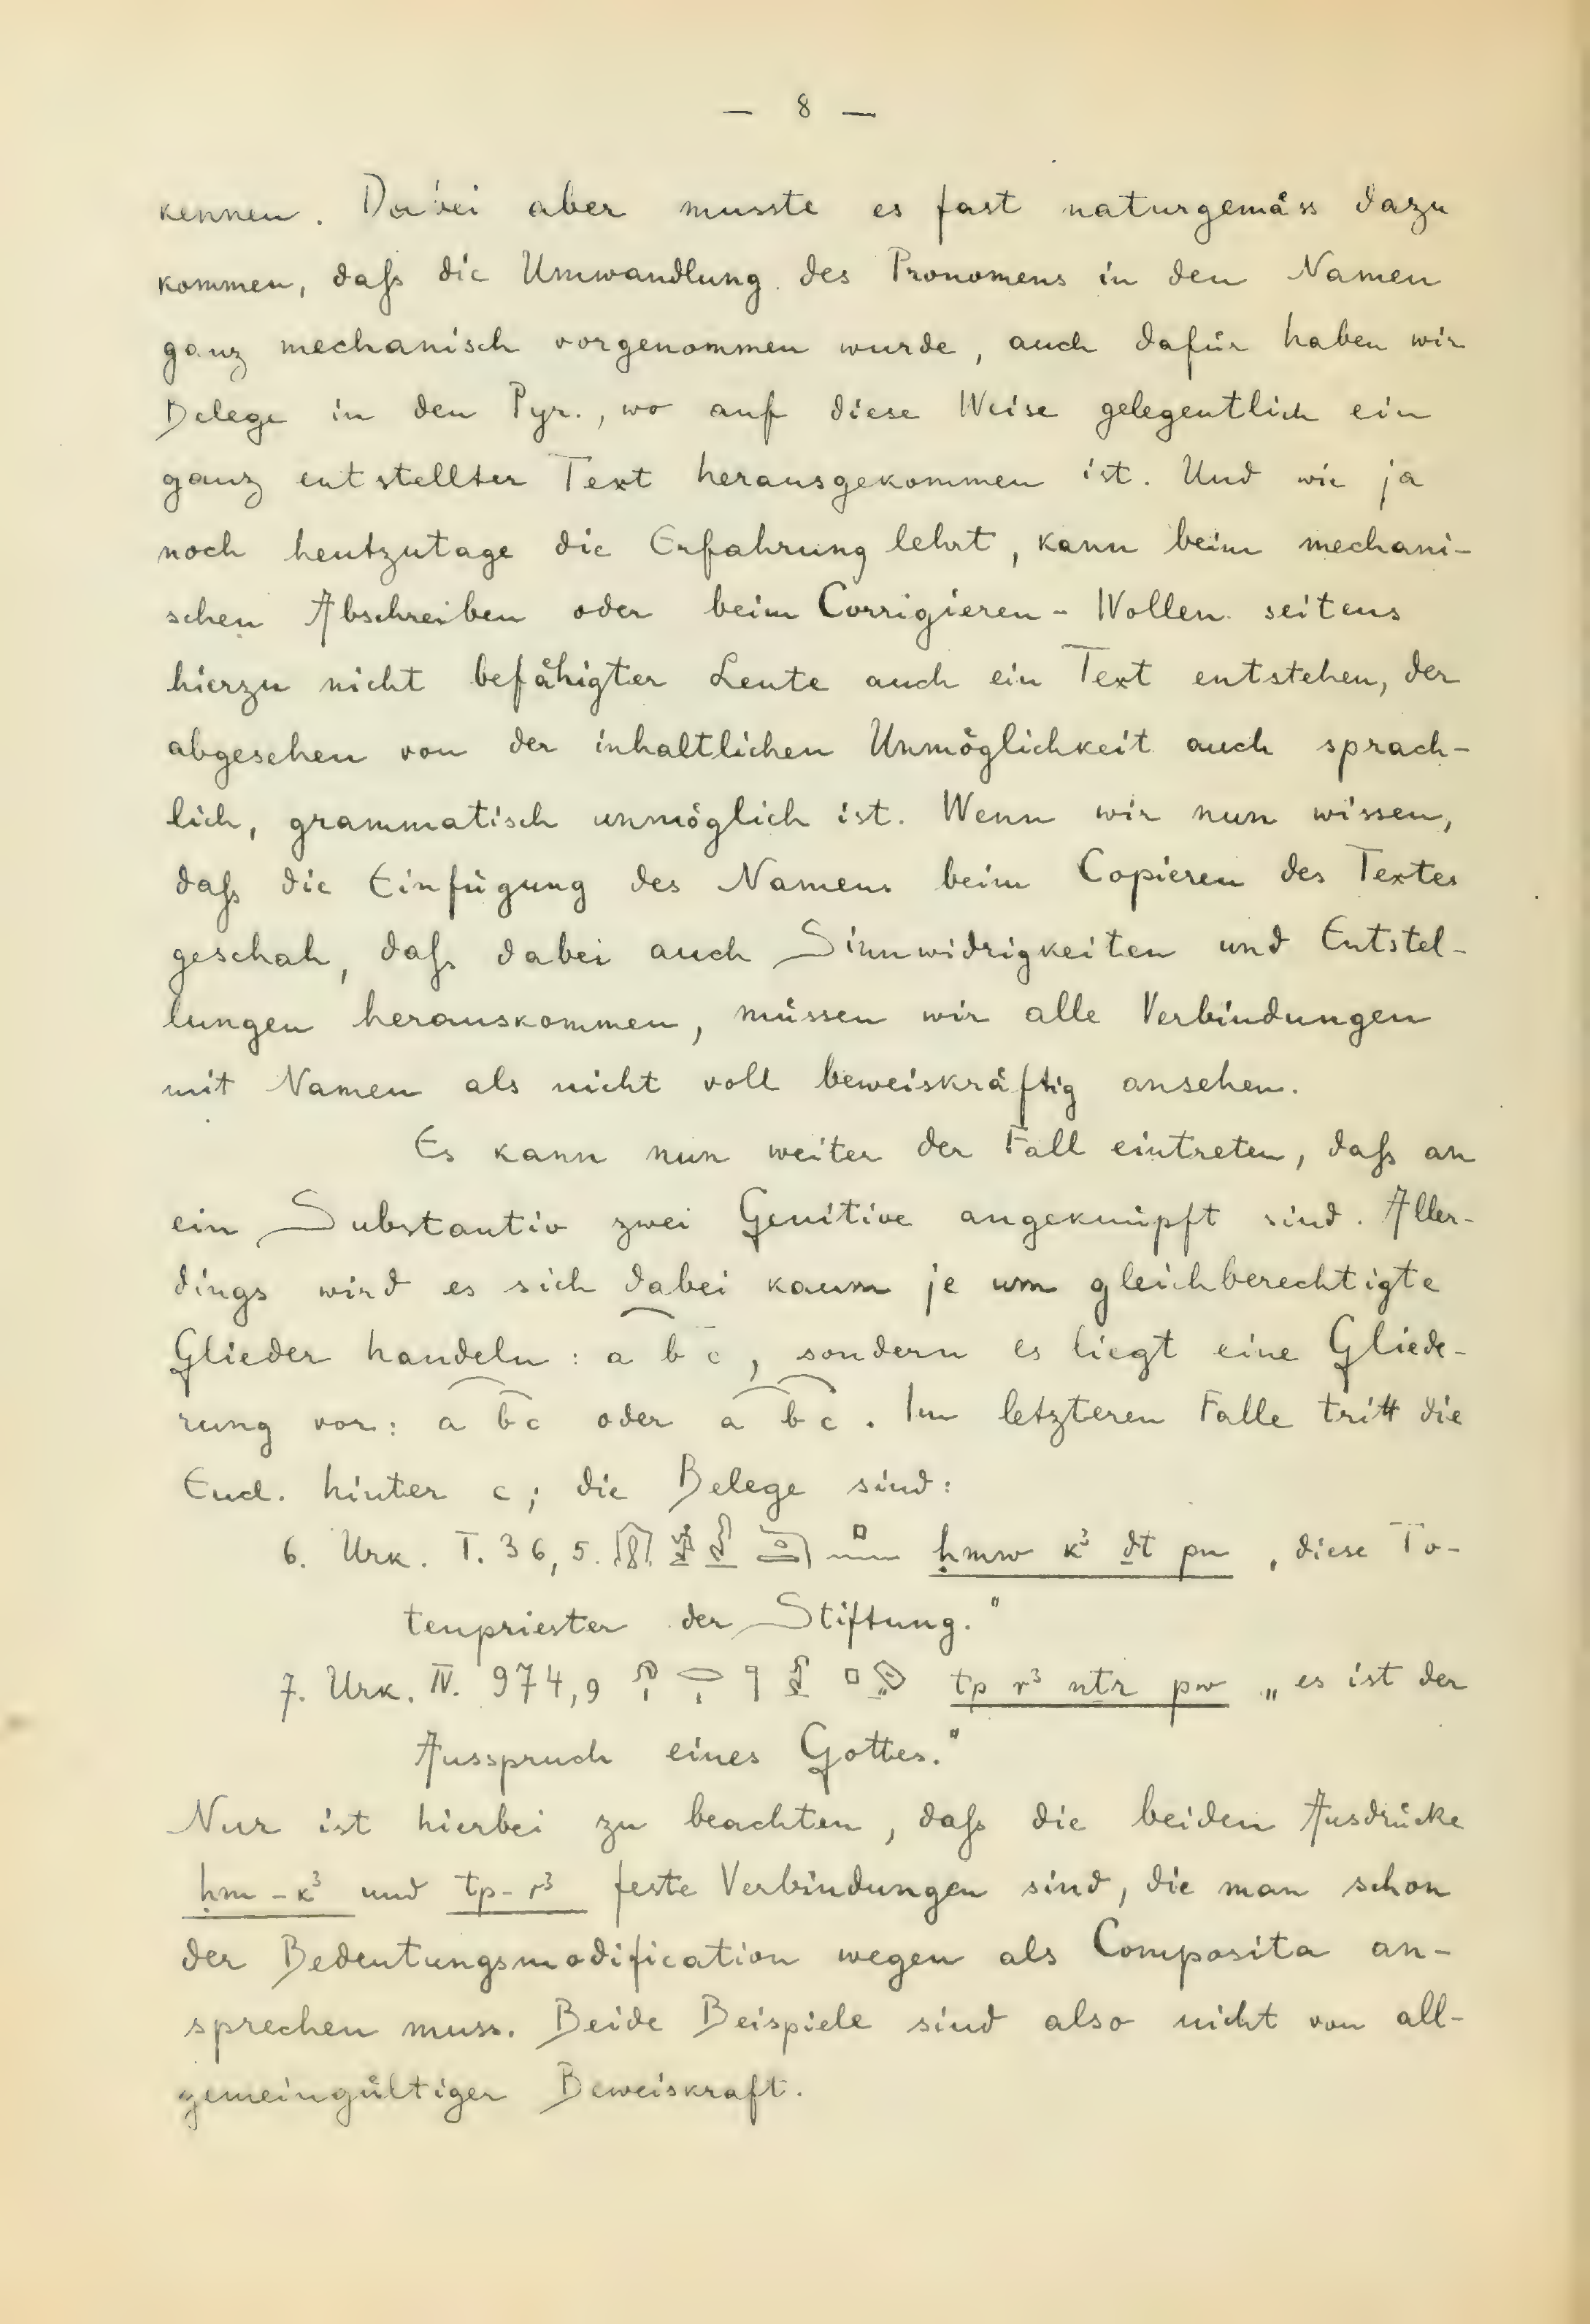 — 8 —
kennen. Dabei aber musste es fast naturgemäss dazu
kommen, daß die Umwandlung des Pronomens in den Namen
ganz mechanisch vorgenommen wurde, auch dafür haben wir
Belege in den Pyr., wo auf diese Weise gelegentlich ein
ganz entstellter Text herausgekommen ist. Und wie ja
noch heutzutage die Erfahrung lehrt, kann beim mechani-
schen Abschreiben oder beim Corrigieren-Wollen seitens
hierzu nicht befähigter Leute auch ein Text entstehen, der
abgesehen von der inhaltlichen Unmöglichkeit auch sprach-
lich, grammatisch unmöglich ist. Wenn wir nun wissen,
daß die Einfügung des Namens beim Copieren des Textes
geschah, daß dabei auch Sinnwidrigkeiten und Entstel-
lungen herauskommen, müssen wir alle Verbindungen
mit Namen als nicht voll beweiskräftig ansehen.
Es kann nun weiter der Fall eintreten, daß an
ein Substantiv zwei Genitive angeknüpft sind. Aller-
dings wird es sich dabei kaum je um gleichberechtigte
Glieder handeln: a b c, sondern es liegt eine Gliede-
rung vor: a b c oder a b c. Im letzteren Falle tritt die
Encl. hinter c; die Belege sind:
6. Urk. I. 36, 5. ḥmw kꜣ ḏt pn „diese To-
tenpriester der Stiftung."
7. Urk. IV. 974,9 tp rꜣ nṯr pw „es ist der
Ausspruch eines Gottes."
Nur ist hierbei zu beachten, daß die beiden Ausdrücke
ḥm-kꜣ und tp-rꜣ feste Verbindungen sind, die man schon
der Bedeutungsmodification wegen als Composita an-
sprechen muss. Beide Beispiele sind also nicht von all-
gemeingültiger Beweiskraft.